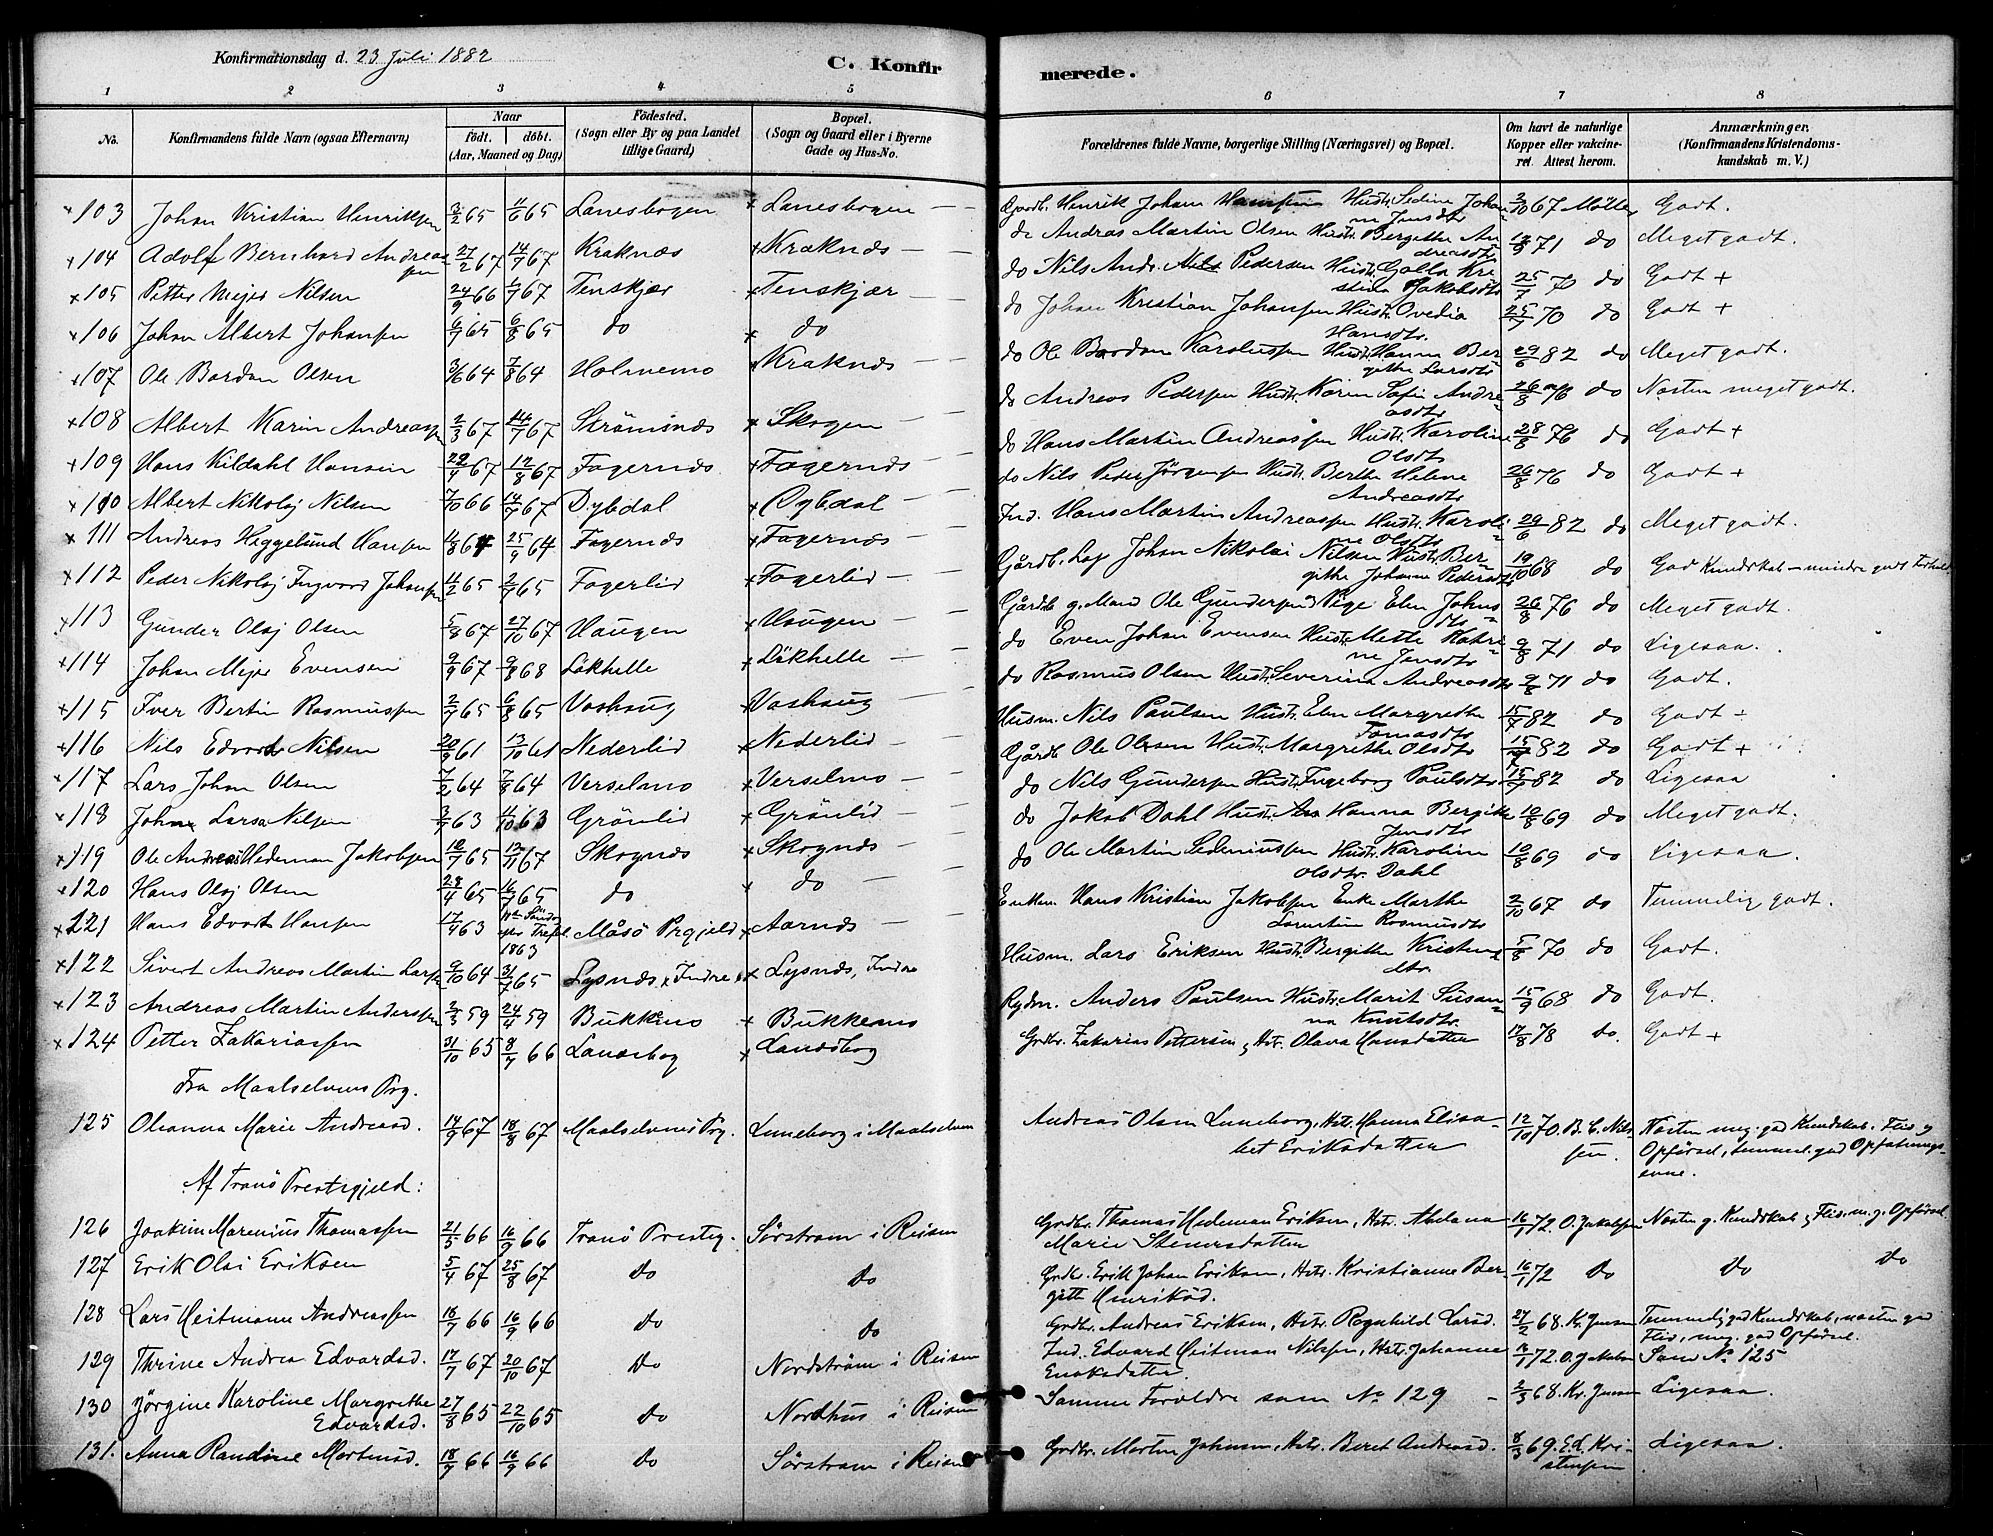 Konfirmationsdag d. 23 Juli 1882
C. Konfirmerede.
1 2 3 4 5 6 7 8
No. Konfirmandens fulde Navn (ogsaa Efternavn) Naar født. døbt. (Aar, Maaned og Dag) Födested. (Sogn eller By og paa Landet tillige Gaard) Bopæl. (Sogn og Gaard eller i Byerne Gade og Hus-No. Forældrenes fulde Navne, borgerlige Stilling (Næringsvei) og Bopæl. Om havt de naturlige Kopper eller vakcineret. Attest herom. Anmærkninger. (Konfirmandens Kristendomskundskab m. V.)
103 Johan Kristian Henriksen 3/2 65 11/6 65 Lanesbogen Lanesbogen Gårdb. Henrik Johan Hansen Hustr. Sedine Johanne Jensdtr 2/10 67 Møller Godt.
104 Adolf Bernhard Andreassen 27/2 67 14/7 67 Kraknæs Kraknæs do Andras Martin Olsen Hustr. Bergithe Andreasdtr 71 do Meget godt.
105 Petter Mejer Nilsen 24/9 66 67 Tenskjær Tenskjær do Nils Andr. Pedersen Hustr. Golla Kristina Jakobsdtr 25/7 70 do Godt +
106 Johan Albert Johansen 6/7 65 6/8 65 do do do Johan Kristian Johansen Hustr. Ovedia Hansdtr. 25/7 70 do Godt +
107 Ole Bardon Olsen 3/6 64 7/8 64 Holmemo Kraknæs do Ole Bardon Karolussen Hustr. Hanna Bergithe Larsdtr 29/6 82 do Meget godt.
108 Albert Karin Andreassen 2/3 67 14/7 67 Strömsnæs Skogen do Andreas Pedersen Hustr. Karen Sofie Andreasdtr 26/8 76 do Næsten meget godt.
109 Hans Kildahl Hansen 67 67 Fagernæs Fagernæs do Hans Martin Andreassen Hustr. Karoline Olsdtr 28/8 76 do Godt +
110 Albert Nikolaj Nilsen 7/10 66 14/7 67 Dybdal Dybdal do Nils Peder Jørgensen Hustr. Berthe Helene Andreasdtr 26/8 76 do Godt +
111 Andreas Heggelund Hansen 11/8 64 25/9 64 Fagernæs Fagernæs Ind. Hans Martin Andreassen Hustr. Karoline Olsdtr 29/6 82 do Meget godt.
112 Peder Nikolaj Ingvard Johansen 11/2 65 2/7 65 Fagerlid Fagerlid Gårdb. Johan Nikolai Nilsen Hustr. Bergithe Johanne Pedersdtr 19/10 68 do God Kundskab – mindre godt Forhold
113 Gunder Olaj Olsen 5/8 67 27/10 67 Haugen Haugen Gårdb g. Mand Ole Gundersen Pige Elen Johnsdtr 26/8 76 do Meget godt.
114 Johan Mejer Evensen 9/9 67 9/8 68 Likhelle Likhelle do Even Johan Evensen Hustr. Mette Katrine Jensdtr 9/8 71 do Ligesaa.
115 Iver Bertin Rasmussen 2/7 65 6/8 65 Vashaug Vashaug do Rasmus Olsen Hustr. Severina Andreasdtr 9/8 71 do Godt.
116 Nils Edvard Nilsen 20/9 61 13/10 61 Nederlid Nederlid Husm. Nils Paulsen Hustr. Elen Margrethe Tomasdtr 15/7 82 do Godt
117 Lars Johan Olsen 7/2 64 7/8 64 Verselmo Verselmo Gårdb Ole Olesen Hustr. Margrethe Olsdtr 15/7 82 do Godt +
118 Johan Larsa Nilsen 3/7 63 11/10 63 Grönlid Grönlid do Nils Gundersen Hustr. Ingeborg Paulsdtr 15/7 82 do Ligesaa
119 Ole Andreas Hedeman Jakobsen 10/7 65 67 Skognæs Skognæs do Jakob Dahl Hustr. Hanna Bergitte Jensdtr 10/8 69 do Meget godt.
120 Hans Olaj Olsen 28/4 65 16/7 65 do do do Ole Martin Sedeniussen Hustr. Karoline Olsdtr. Dahl 10/8 69 do Ligesaa.
221 Hans Edvart Hansen 17/4 63 Søndag Trefol. 1863 Måsö Prgjeld Aarnæs Enkem. Hans Kristian Jakobsen Enke Marthe Rasmusdtr 2/10 67 do Temmelig godt.
122 Sivert Andreas Martin Larsen 9/10 64 31/7 65 Lysnæs, Indre Lysnæs, Indre Husm. Lars Eriksen Hustr. Bergithe Kristendtr. 5/8 70 do Godt.
123 Andreas Martin Andersen 2/3 59 24/4 59 Bukkemo Bukkemo Rydm. Anders Paulsen Hustr. Marit Susanna Knutsdtr. 15/9 68 do Godt.
124 Petter Zakariassen 31/10 65 8/7 66 Lanesbog Lanesbog Grdbr. Zakarias Pettersen, Hstr. Olava Hansdatter 17/8 78 do. Godt +
Fra Maalselvens Prg.
125 Oleanna Marie Andreasd. 14/9 67 18/8 67 Maalselvens Prg. Luneborg i Maalselven Andreas Olsen Luneborg, Hstr. Hanna Elisabet Eriksdatter 12/10 70. B. C. Nilssen. Næsten meg. god Kundskab. Flid og Opførsel, temmel. god Opfatningsevne.
Af Tranö Prestegjeld:
126 Joakim Marenius Thomassen 21/5 66 16/9 66 Tranö Presteg. Sørstrøm i Reisen Grdbr. Thomas Hedeman Eriksen, Hstr. Abelana Marie Steensdatter 16/1 72 O. Jakobsen Næsten g. Kundskab, Flid. m. g. Opførsel
127 Erik Olai Eriksen 5/4 67 25/8 67 do do Grdbr. Erik Johan Eriksen, Hstr. Kristianne Bergitte Henriksd. 16/1 72 do do do
128 Lars Heitmann Andreassen 18/7 66 16/9 66 do do Grdbr. Andreas Eriksen, Hstr. Ragnhild Larsd. 27/2 68. Kr. Jensen Temmelig god Kundskab, næsten god Flid, meg. god Opførsel.
129 Thrine Andrea Edvardsd. 17/7 67 20/10 67 do Nordstrøm i Reisen Ind. Edvard Heitman Nilssen, Hstr. Johanna Enoksdatter. 16/1 72. O. Jakobsen Som No 125
130 Jörgine Karoline Margrethe Edvardsd. 27/8 65 22/10 65 do Nordhus i Reisen Samme Forældre som No 129 2/3 68. Kr. Jensen Ligesaa.
131. Anna Randine Mortensd. 18/7 66 16/9 66 do Sørstrøm i Reisen Grdbr. Morten Johnsen, Hstr. Beret Andreasd. 8/3 69. E. d. Kristensen Ligesaa.